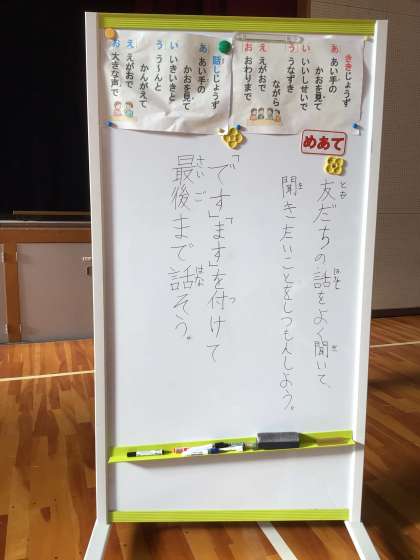 ききじょうず
あ あい手の
かおを見て
い いいしせいで
う うなずき
ながら
え えがおで
お おわりまで
話しじょうず
あ あい手の
かおを見て
い いきいきと
う う～んと
かんがえて
え えがおで
お 大きな声で
めあて
友だちの話をよく聞いて、
聞きたいことをしつもんしよう。
「です」「ます」を付けて
最後まで話そう。